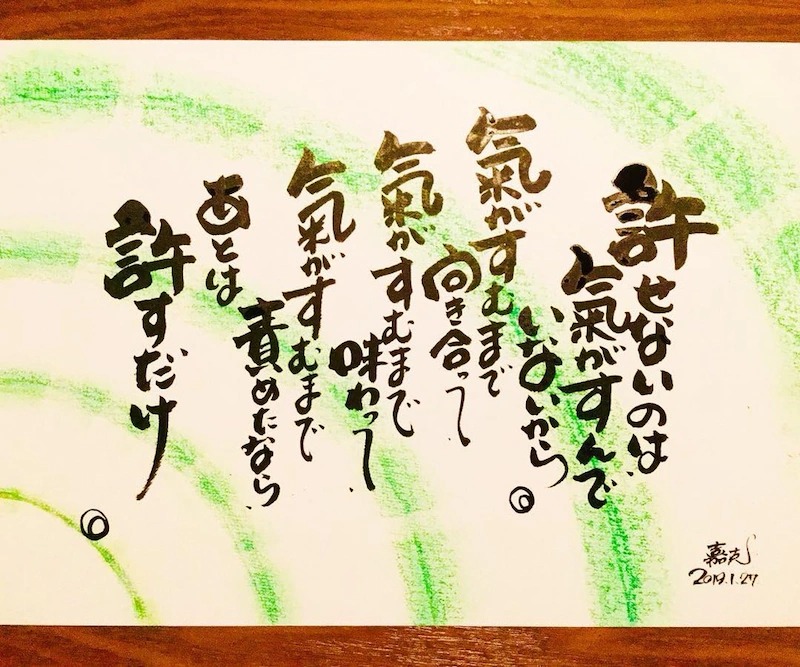 許せないのは
氣がすんで
いないから。
氣がすむまで
向き合って
氣がすむまで
味わって
氣がすむまで
責めたなら
あとは
許すだけ。
2019.1.27